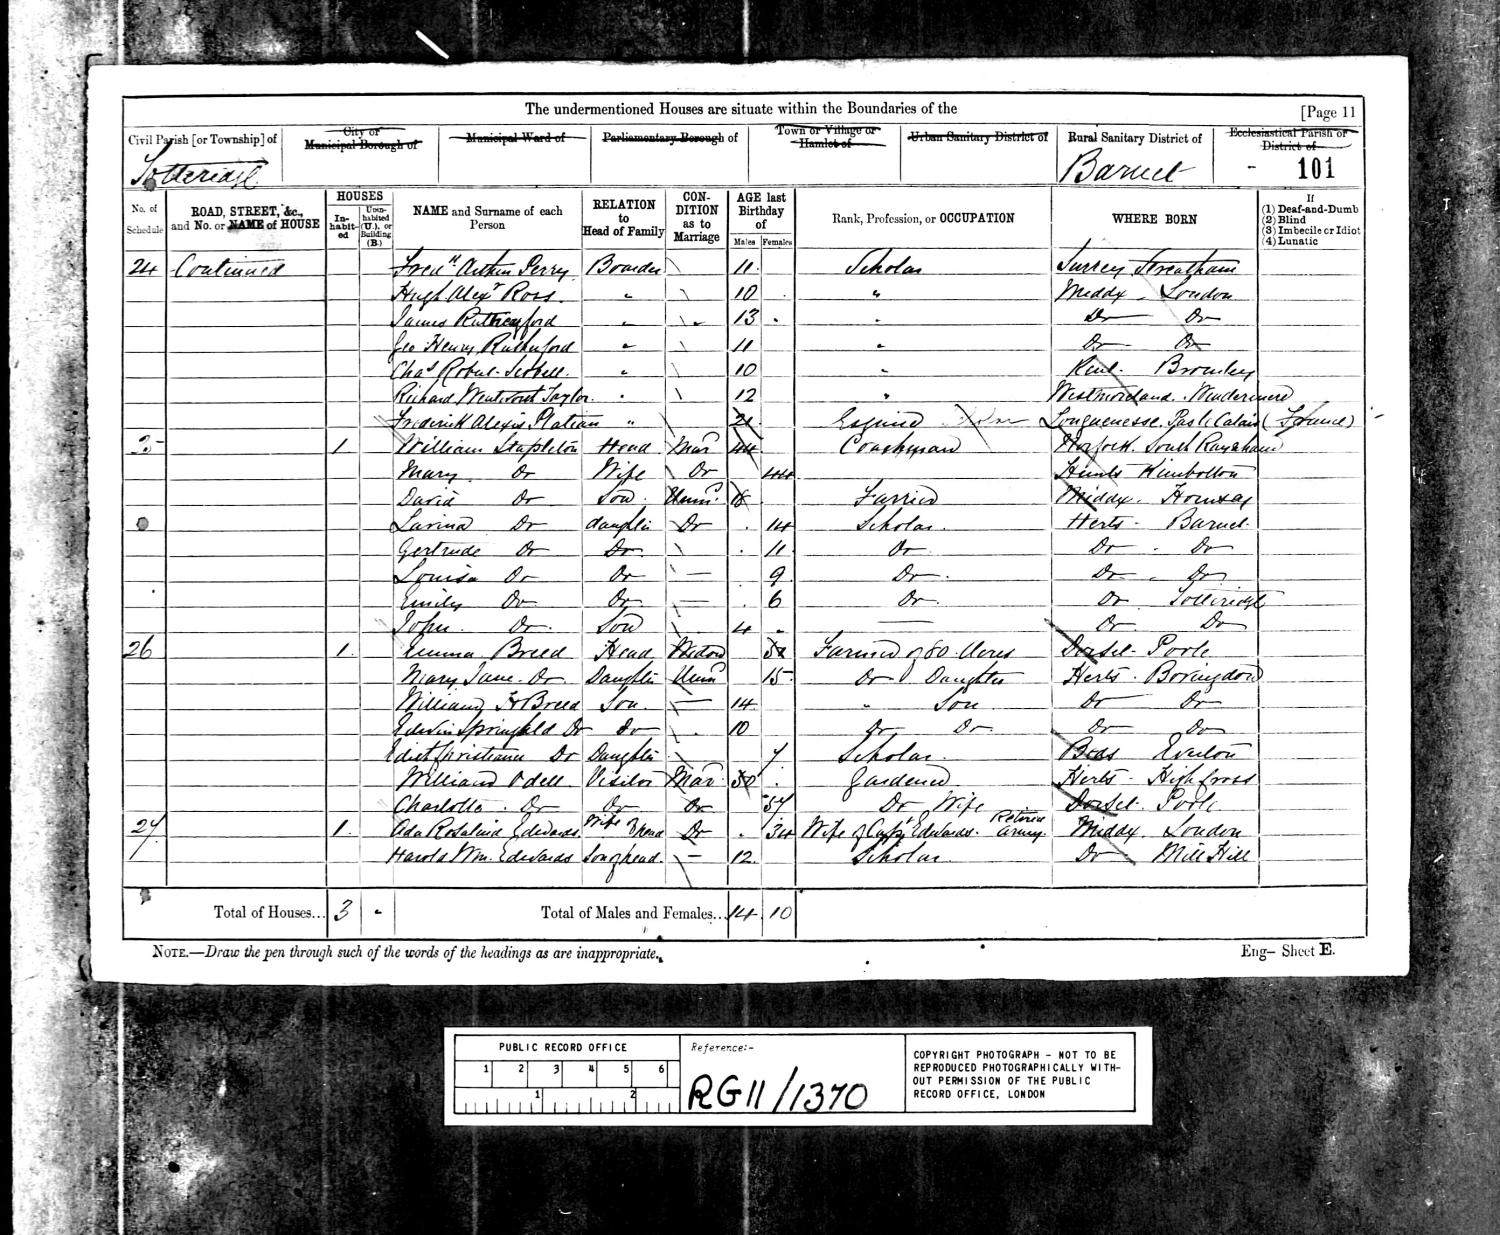 The undermentioned Houses are situate within the Boundaries of the [Page 11
Civil Parish [or Township] of City or Municipal Borough of Municipal Ward of Parliamentary Borough of Town or Village or Hamlet of Urban Sanitary District of Rural Sanitary District of Ecclesiastical Parish or District of
Totteridge Barnet - 101
No. of Schedule ROAD, STREET, &c., and No. or NAME of HOUSE HOUSES Inhabited Uninhabited (U.), or Building (B.) NAME and Surname of each Person RELATION to Head of Family CONDITION as to Marriage AGE last Birthday of Males Females Rank, Profession, or OCCUPATION WHERE BORN If (1) Deaf-and-Dumb (2) Blind (3) Imbecile or Idiot (4) Lunatic
24 Continued Fredk Arthur Perry Boarder 11 Scholar Surrey Streatham
Hugh Alexr Ross " 10 " Middx London
James Rutherford " 13 " Do Do
Geo Henry Rutherford " 11 " Do Do
Chas Robert " 10 " Kent Bromley
Richard Wentworth Taylor " 12 " Westmorland Windermere
Frederick Alexis " 21 Longuenesse Pas de Calais (France)
25 1 William Stapleton Head Mar 44 Coachman Norfolk South Raynham
Mary Do Wife Do 44 Hunts Kimbolton
David Do Son Unm 18 Farrier Middx Hornsey
Lavina Do daughter Do 14 Scholar Herts Barnet
Gertrude Do Do 11 Do Do Do
Louisa Do Do — 9 Do Do Do
Emily Do Do — 6 Do Do Totteridge
John Do Son 4 — Do Do
26 1 Emma Breed Head Widow Farmer of 80 Acres Dorset Poole
Mary Jane Do Daughter Unm 15 Do Daughter Herts Bovingdon
William H Breed Son — 14 " Son Do Do
Edwin Springfield Do Do 10 Do Do Do Do
Edith Do Daughter 7 Scholar Beds
William Odell Visitor Mar 50 Gardener Herts High Cross
Charlotte Do Do Do 57 Do Wife Dorset Poole
27 1 Ada Rosalind Edwards Wife of head Do 34 Wife of Capt Edwards Retired Army Middx London
Harold Wm. Edwards Son of head — 12 Scholar Do Mill Hill
Total of Houses... 3 - Total of Males and Females... 14 10
NOTE.—Draw the pen through such of the words of the headings as are inappropriate. Eng— Sheet E.
PUBLIC RECORD OFFICE
1 2 3 4 5 6
1 2
Reference:-
RG11/1370
COPYRIGHT PHOTOGRAPH - NOT TO BE
REPRODUCED PHOTOGRAPHICALLY WITH-
OUT PERMISSION OF THE PUBLIC
RECORD OFFICE, LONDON